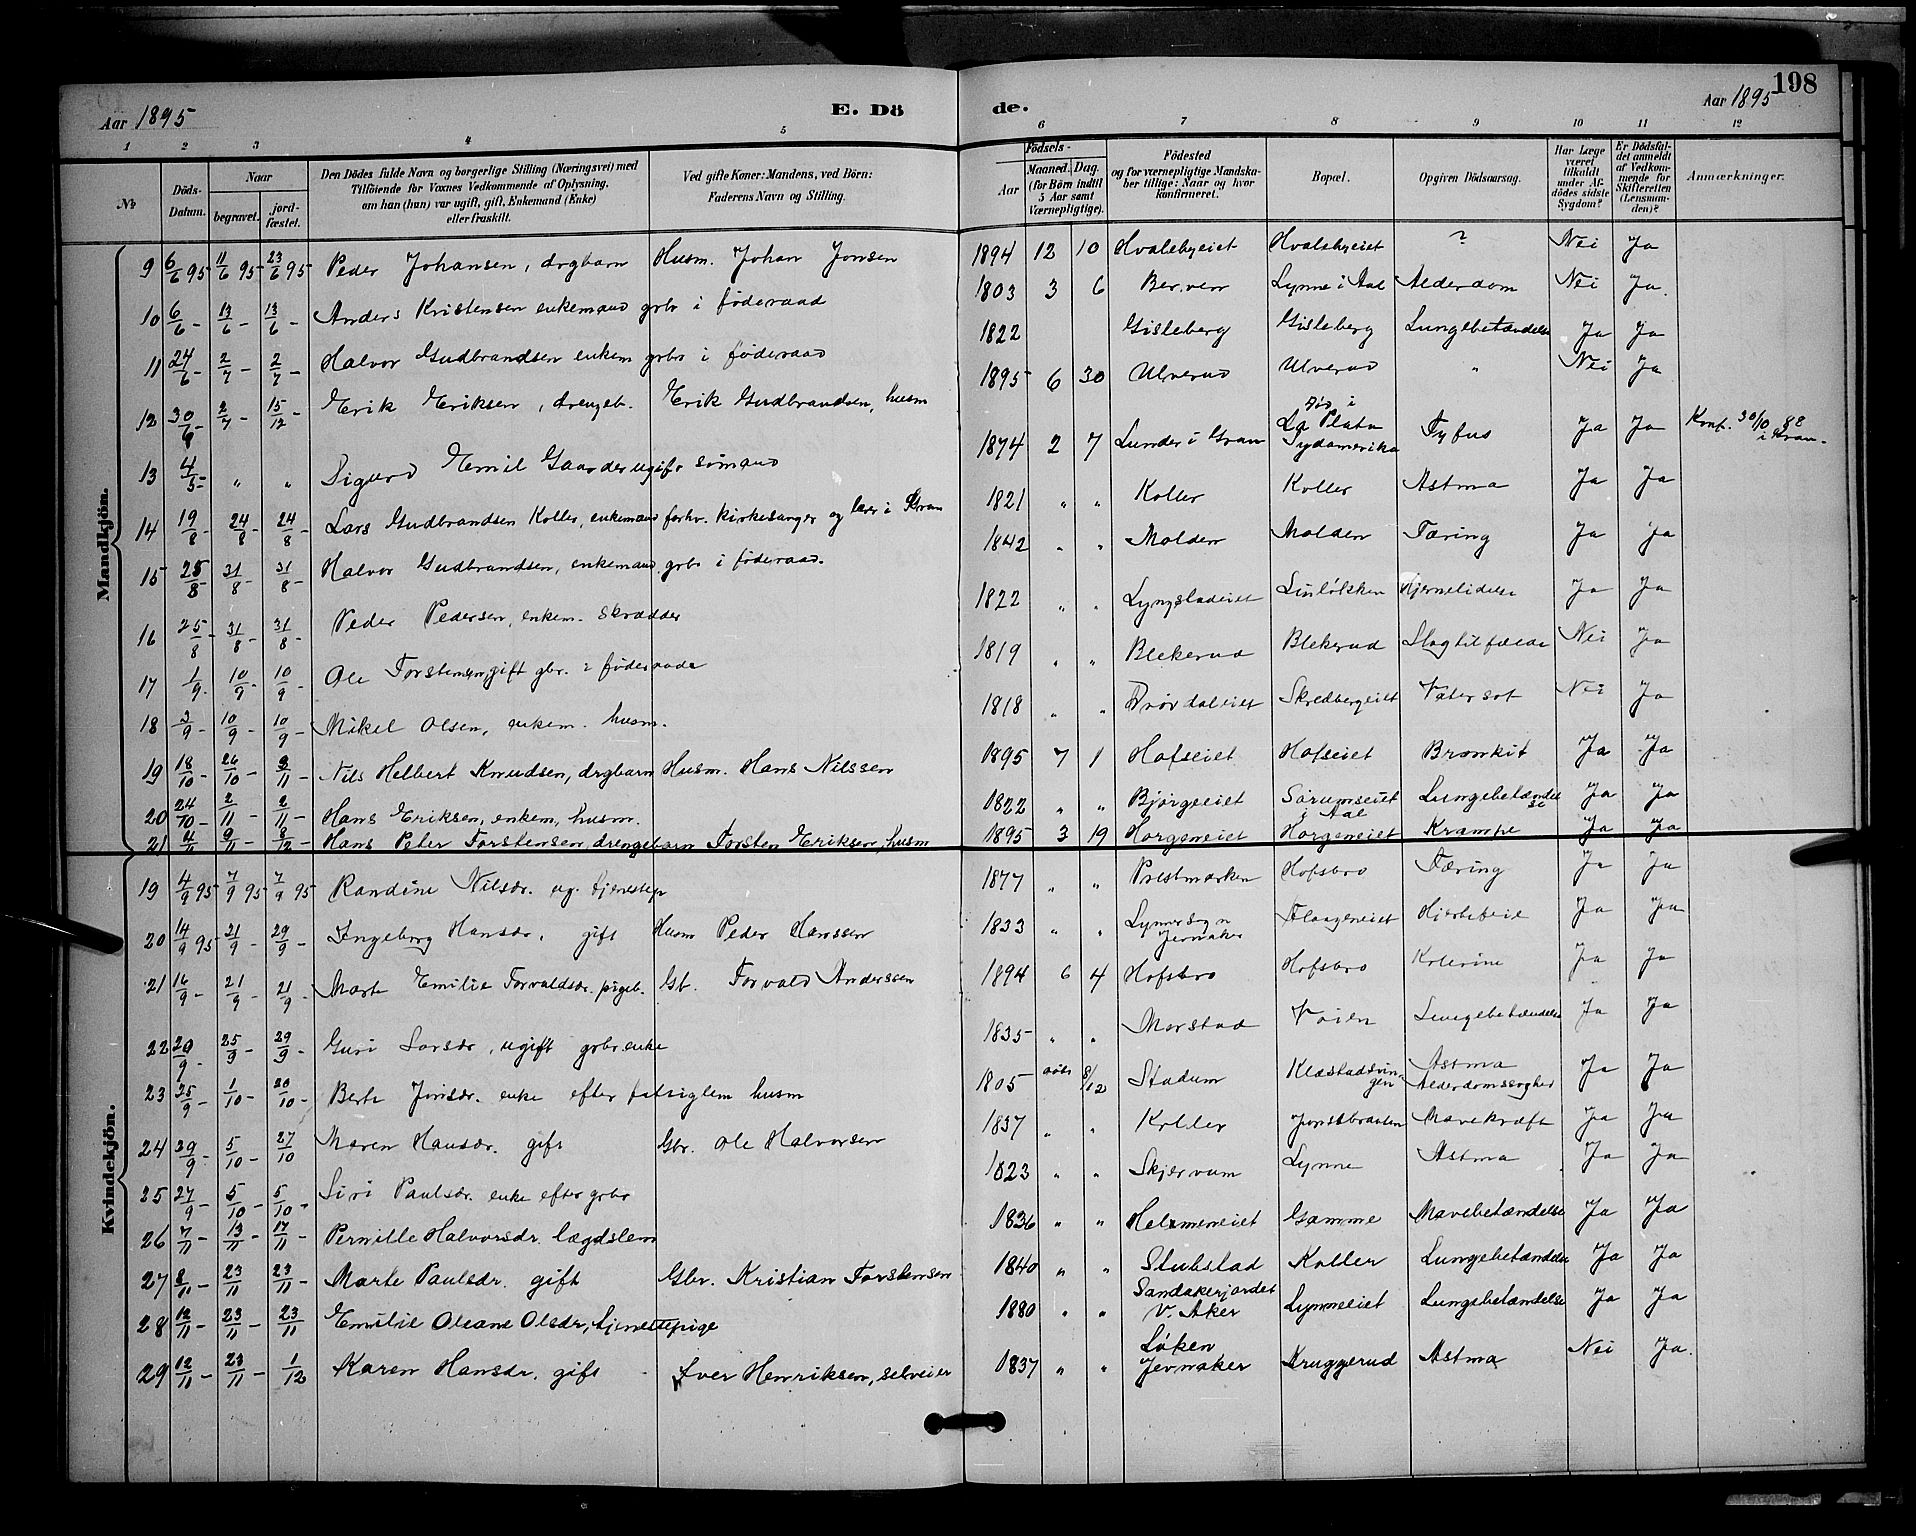 198
Aar 1895 E. Dö de. Aar 1895
1 2 3 4 5 6 7 8 9 10 11 12
№ Döds-Datum. Naar begravet. jordfæstet. Den Dödes fulde Navn og borgerlige Stilling (Næringsvei) med Tilföiende for Voxnes Vedkommende af Oplysning, om han (hun) var ugift, gift, Enkemand (Enke) eller fraskilt. Ved gifte Koner: Mandens, ved Börn: Faderens Navn og Stilling. Födsels- Aar Maaned. Dag. (for Börn indtil 5 Aar samt Værnepligtige). Födested og for værnepligtige Mandskaber tillige: Naar og hvor konfirmeret. Bopæl. Opgiven Dödsaarsag. Har Læge været tilkaldt under Afdödes sidste Sygdom? Er Dödsfaldet anmeldt af Vedkommende for Skifteretten (Lensmanden)? Anmærkninger.
Mandkjön.
9 6/6 95 11/6 95 23/6 95 Peder Johansen, drgbarn Husm. Johan Jonsen 1894 12 10 Hvalebyeiet Hvalebyeiet ? Nei Ja
10 6/6 - 13/6 - 13/6 - Anders Kristensen enkemand grbr i føderaad 1803 3 6 Berven Lynne i Aal Alderdom Nei Ja.
11 24/6 - 2/7 - 2/7 - Halvor Gudbrandsen enkem grbr i føderaad 1822 Gisleberg Gisleberg Lungebetændelse Ja Ja
12 30/6 - 2/7 - 15/12 - Erik Eriksen, drengeb. Erik Gudbrandsen, husm 1895 6 30 Ulverud Ulverud " Nei Ja
13 4/5 - " " Sigurd Emil Gaarder ugift sømand 1874 2 7 Lunder i Gran Død i La Plata Sydamerika Tyfus Ja Ja Konf. 30/10 88 i Gran.
14 19/8 - 24/8 - 24/8 - Lars Gudbrandsen Koller, enkemand forhv. kirkesanger og lærer i Gran 1821 " " Koller Koller Astma Ja Ja
15 25/8 - 31/8 - 31/8 - Halvor Gudbrandsen, enkemand, grbr i føderaad. 1842 " " Molden Molden Tæring Ja Ja
16 25/8 - 31/8 - 31/8 - Peder Pedersen, enkem. skrædder 1822 " " Lyngstadeiet Linløkken Hjernelidelse Ja Ja
17 1/9 - 10/9 - 10/9 - Ole Torstensen, gift gbr. i føderaade 1819 " " Blekerud Blekerud Slagtilfælde Nei Ja
18 3/9 - 10/9 - 10/9 - Mikel Olsen, enkem. husm. 1818 " " Skredbergeiet Vatersot Nei Ja
19 18/10 - 26/10 - 3/11 - Nils Helbert Knudsen, drgbarn Husm. Hans Nilssen 1895 7 1 Hofseiet Hofseiet Bronkit Ja Ja
20 24/10 - 2/11 - 2/11 - Hans Eriksen, enkem, husm. 1822 " " Bjørgeeiet Sørumseiet i Aal Lungebetændelse Ja Ja
21 4/11 9/11 - 8/12 - Hans Peter Torstensen drengebarn Torsten Eriksen, husm 1895 3 19 Horgeneiet Horgeneiet Krampe Ja Ja
Kvindekjön.
19 4/9 95 7/9 95 7/9 95 Randine Nilsdr. ug. tjenestep 1877 " " Prestmarken Hofsbro Tæring Ja Ja
20 14/9 95 21/9 - 29/9 - Ingeborg Hansdr. gift Husm Peder Hanssen 1833 " " Jevnaker Flaageneiet Hjertefeil Ja Ja
21 16/9 - 21/9 - 21/9 - Marte Emilie Torvaldsdr. pigeb. Gb. Torvald Anderssen 1894 6 4 Hofsbro Hofsbro Kolerine Ja Ja
22 20/9 - 25/9 - 29/9 - Guri Larsdr, ugift grbr.enke 1835 - " " Morstad Voien Lungebetændelse Ja Ja
23 25/9 - 1/10 - 20/10 - Berte Jonsdr. enke efter fatiglem husm 1805 - 8/12 Stadum Klæstadsvingen Astma Alderdomssvaghed Ja Ja
24 29/9 - 5/10 - 27/10 Maren Hansdr. gift Gbr. Ole Halvorsen 1837 " " Koller Jonsbraaten Mavekræft Ja Ja
25 27/9 - 5/10 - 5/10 - Siri Paulsdr. enke efter grbr 1823 " " Skjervum Lynne Astma Ja Ja
26 7/11 - 13/11 - 17/11 - Pernille Halvorsdr. lægdslem 1836 " " Helmeneiet Gamme Mavebetændelse Ja Ja
27 8/11 - 23/11 - 23/11 - Marte Paulsdr. gift Gbr. Kristian Torstensen 1840 " " Stubstad Koller Lungebetændelse Ja Ja
28 12/11 - 23/11 - 23/11 Emilie Oleane Olsdr, tjenestepige 1880 " " Sandakerjordet V. Aker Lynneeiet Lungebetændelse Ja Ja
29 12/11 - 23/11 - 1/12 Karen Hansdr. gift - Iver Henriksen, selveier 1837 " " Løken Jevnaker Kruggerud Astma Nei Ja.